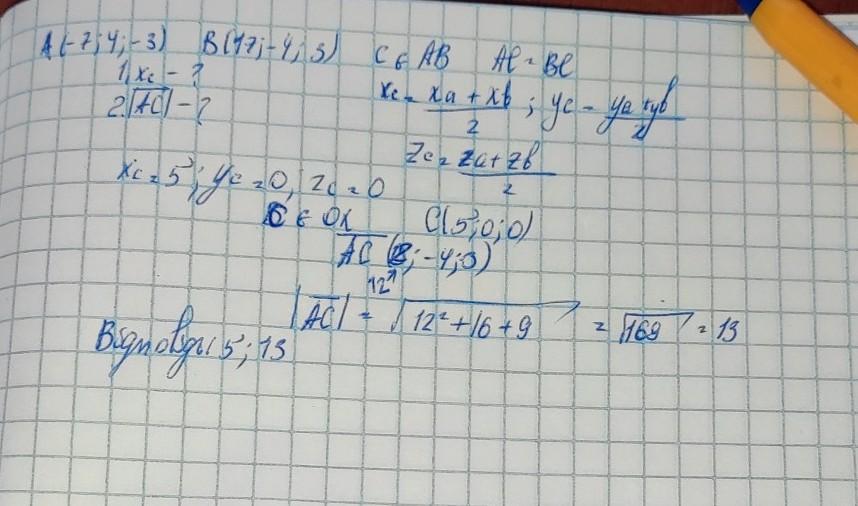 A(-7; 4; -3) B(17; -4; 3) C ∈ AB AC = BC
1. xc - ?
2. |AC| - ?
xc = xa + xb / 2 ; yc = ya + yb / 2
zc = za + zb / 2
xc = 5; yc = 0; zc = 0
C ∈ OX C(5; 0; 0)
AC ( ; -4; 3)
12
|AC| = √12² + 16 + 9 = √169 = 13
Відповідь: 5; 13